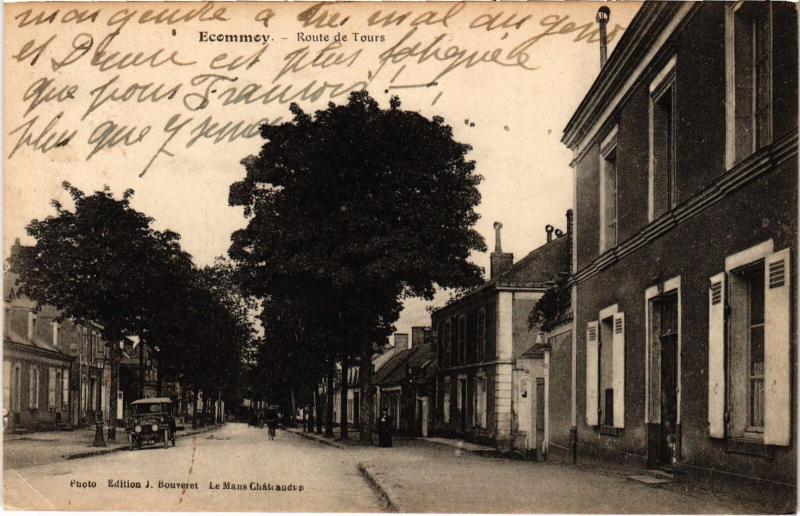 mon gendre a tres mal au genou
Ecommoy. - Route de Tours
et Denise est plus fatiguée
que pour François! -
plus que
Photo Edition J. Bouveret Le Mans Châteaudun